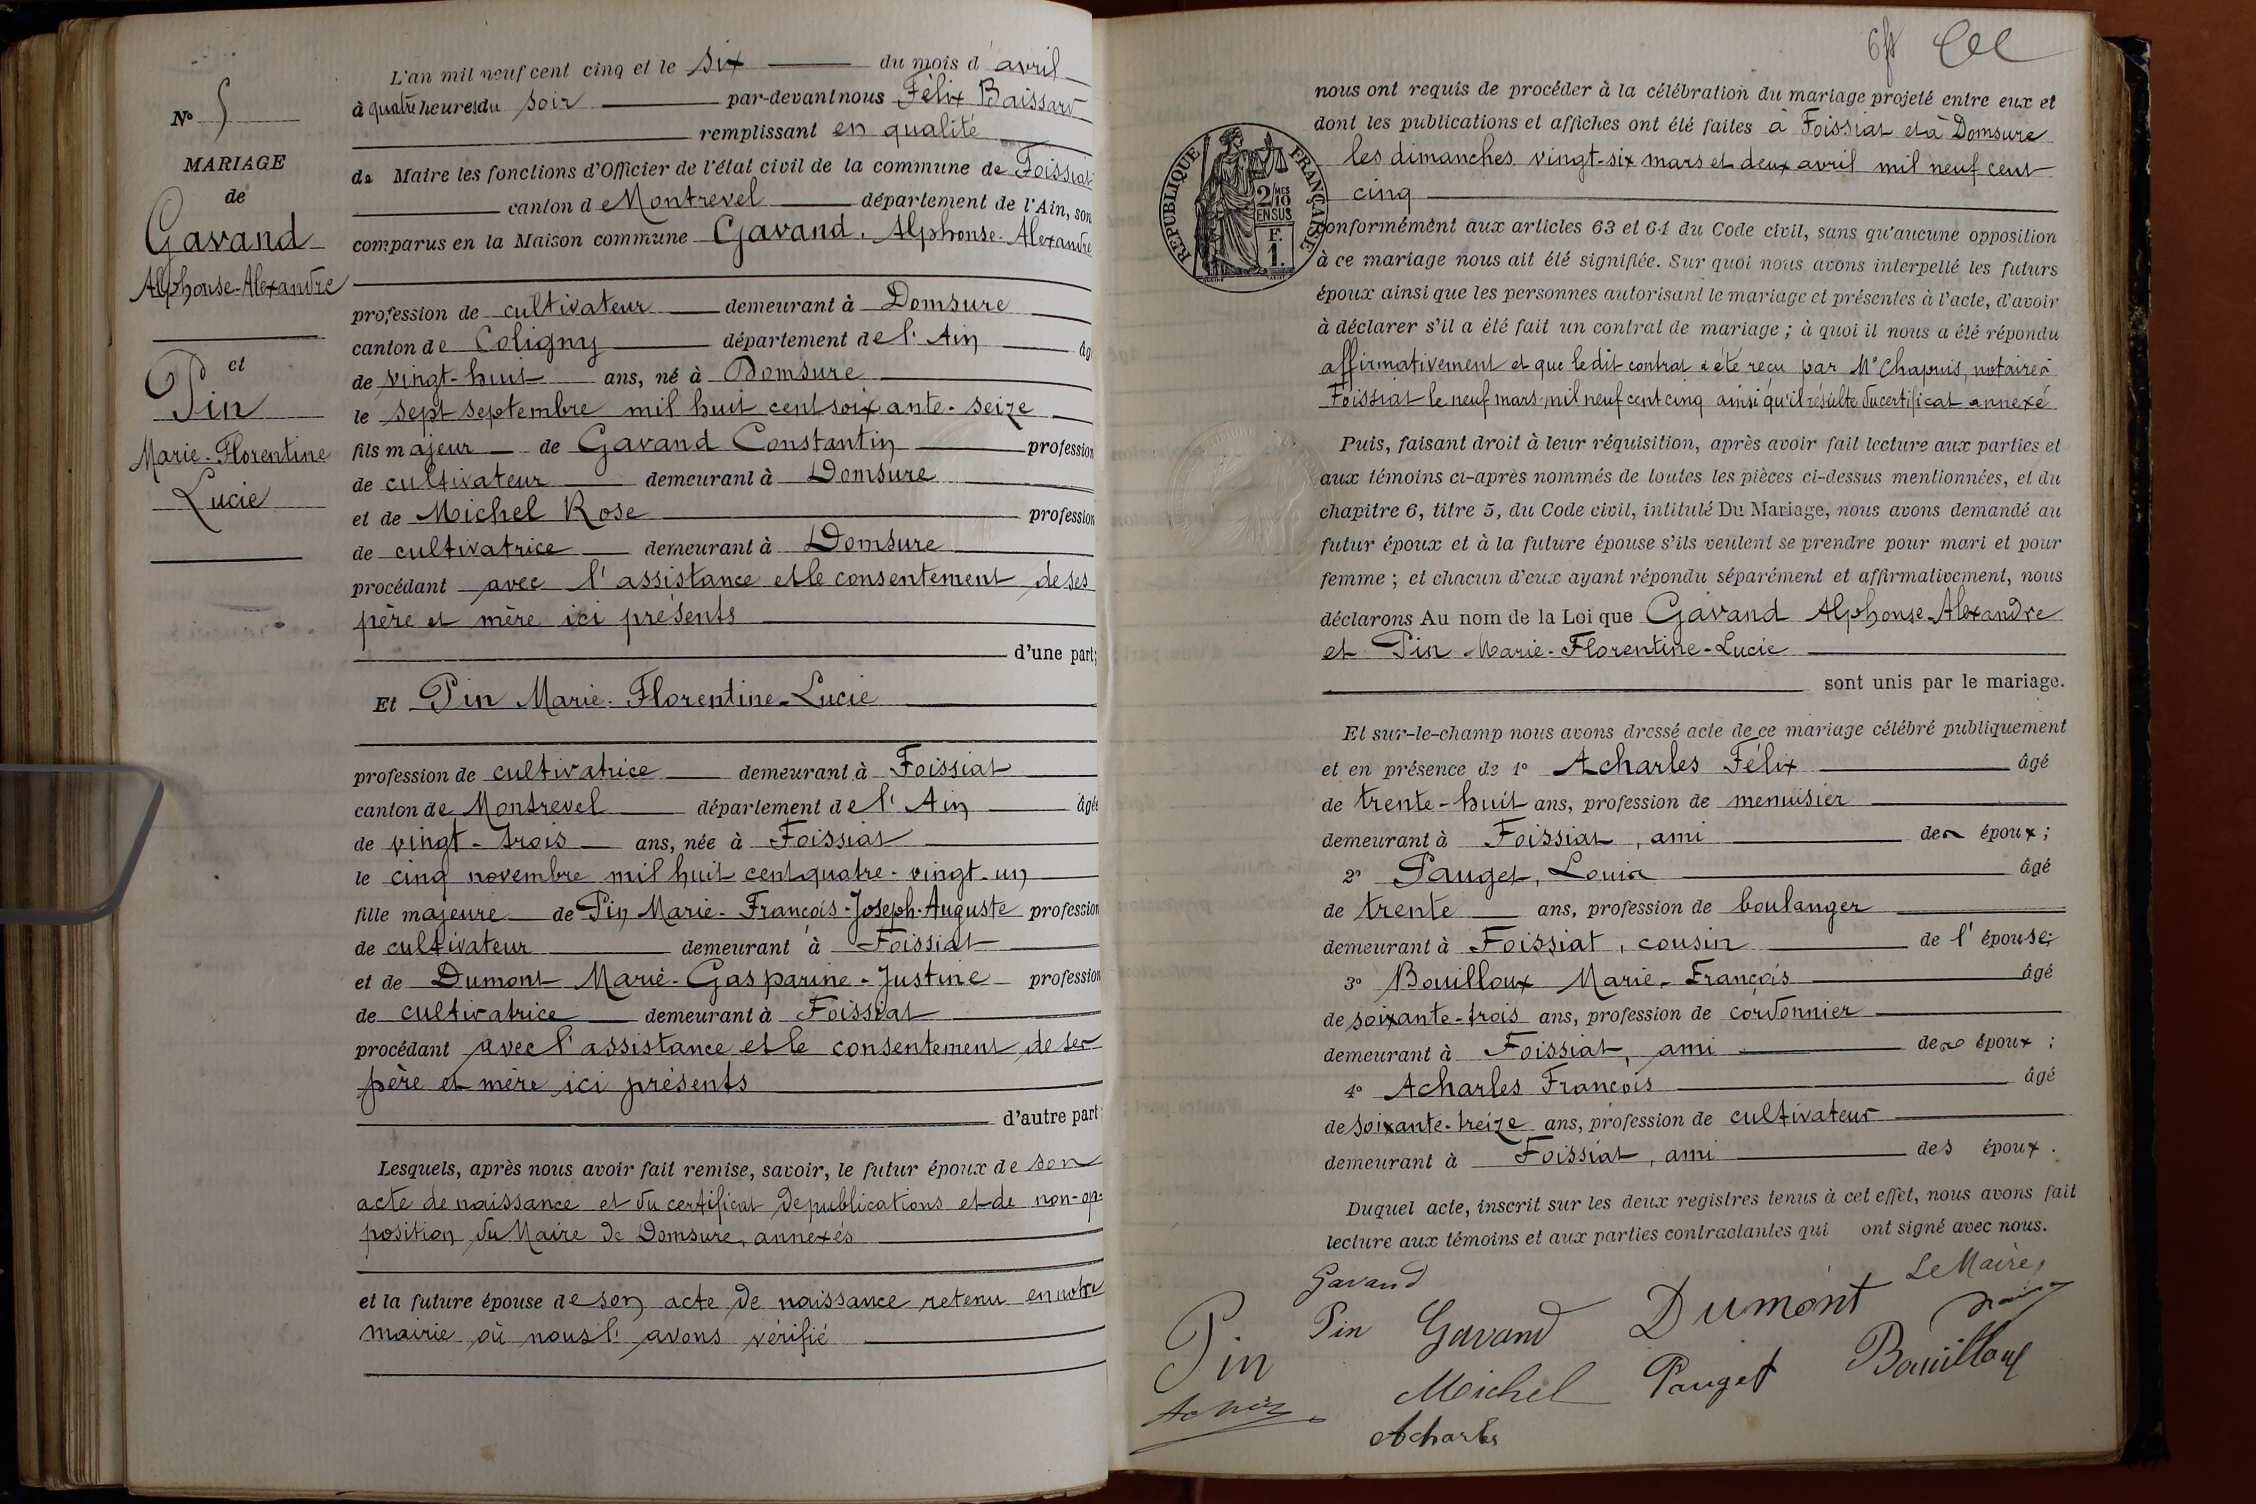 L'an mil neuf cent cinq et le six du mois d'avril
à quatre heures du soir par-devant nous Félix Baissard
remplissant en qualité
de Maire les fonctions d'Officier de l'état civil de la commune de Foissiat
canton de Montrevel département de l'Ain, son
comparus en la Maison commune Gavand, Alphonse-Alexandre
profession de cultivateur demeurant à Domsure
canton de Coligny département de l'Ain âg
de vingt-huit ans, né à Domsure
le sept septembre mil huit cent soixante-seize
fils majeur de Gavand Constantin profession
de cultivateur demeurant à Domsure
et de Michel Rose profession
de cultivatrice demeurant à Domsure
procédant avec l'assistance et le consentement de ses
père et mère ici présents
d'une part;
Et Pin Marie-Florentine-Lucie
profession de cultivatrice demeurant à Foissiat
canton de Montrevel département de l'Ain âgée
de vingt-trois ans, née à Foissiat
le cinq novembre mil huit cent quatre-vingt-un
fille majeure de Pin Marie-François-Joseph-Auguste profession
de cultivateur demeurant à Foissiat
et de Dumont Marie-Gasparine-Justine profession
de cultivatrice demeurant à Foissiat
procédant avec l'assistance et le consentement de ses
père et mère ici présents
d'autre part
Lesquels, après nous avoir fait remise, savoir, le futur époux de son
acte de naissance et du certificat de publications et de non-op-
position du Maire de Domsure, annexés
et la future épouse de son acte de naissance retenu en notre
mairie où nous l'avons vérifié
N° 5
MARIAGE
de
Gavand
Alphonse-Alexandre
et
Pin
Marie-Florentine
Lucie
nous ont requis de procéder à la célébration du mariage projeté entre eux et
dont les publications et affiches ont été faites à Foissiat et à Domsure
les dimanches vingt-six mars et deux avril mil neuf cent
cinq
conformément aux articles 63 et 64 du Code civil, sans qu'aucune opposition
à ce mariage nous ait été signifiée. Sur quoi nous avons interpellé les futurs
époux ainsi que les personnes autorisant le mariage et présentes à l'acte, d'avoir
à déclarer s'il a été fait un contrat de mariage ; à quoi il nous a été répondu
affirmativement et que le dit contrat a été reçu par Me Chapuis, notaire à
Foissiat le neuf mars mil neuf cent cinq ainsi qu'il résulte du certificat annexé
Puis, faisant droit à leur réquisition, après avoir fait lecture aux parties et
aux témoins ci-après nommés de toutes les pièces ci-dessus mentionnées, et du
chapitre 6, titre 5, du Code civil, intitulé Du Mariage, nous avons demandé au
futur époux et à la future épouse s'ils veulent se prendre pour mari et pour
femme ; et chacun d'eux ayant répondu séparément et affirmativement, nous
déclarons Au nom de la Loi que Gavand Alphonse-Alexandre
et Pin Marie-Florentine-Lucie
sont unis par le mariage.
Et sur-le-champ nous avons dressé acte de ce mariage célébré publiquement
et en présence de 1° Acharles Félix âgé
de trente-huit ans, profession de menuisier
demeurant à Foissiat, ami des époux ;
2° Pauget, Louis âgé
de trente ans, profession de boulanger
demeurant à Foissiat, cousin de l'épouse;
3° Bouilloux Marie-François âgé
de soixante-trois ans, profession de cordonnier
demeurant à Foissiat, ami des époux ;
4° Acharles François âgé
de soixante-treize ans, profession de cultivateur
demeurant à Foissiat, ami des époux.
Duquel acte, inscrit sur les deux registres tenus à cet effet, nous avons fait
lecture aux témoins et aux parties contractantes qui ont signé avec nous.
REPUBLIQUE FRANÇAISE
2/10
EN SUS
F.
1.
Gavand
Le Maire,
Pin Gavand Dumont
Pin
Michel Pauget Bouilloux
Acharles